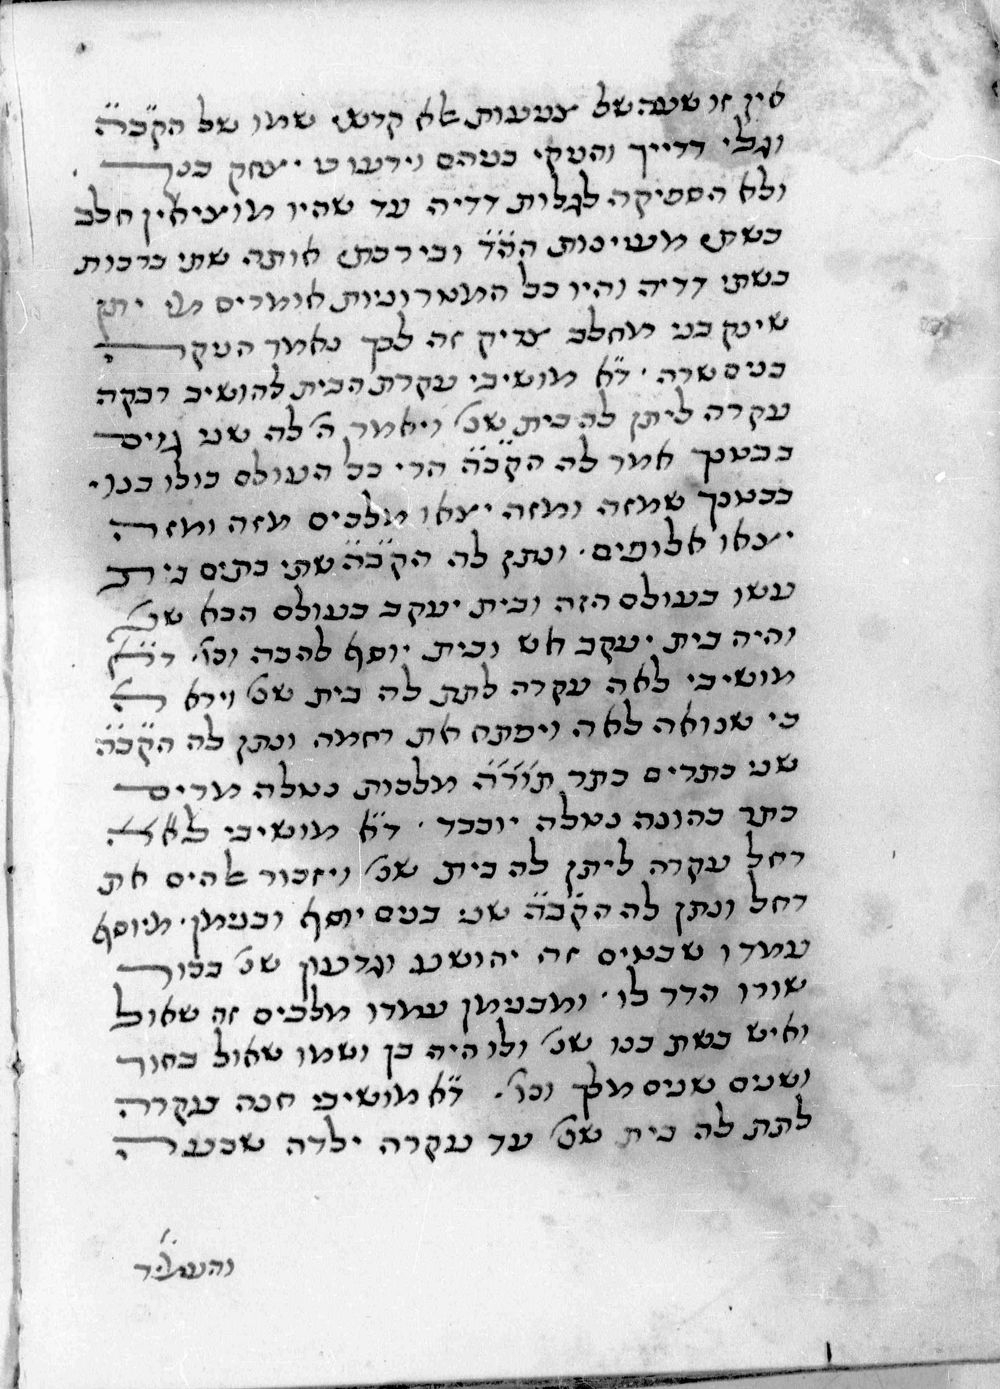 אין זו שעה של צניעות אלא קדש שמו של הק'ב'ה'
וגלי דדייך והניקי בניהם וידעו ש יצחק בנך
ולא הספיקה לגלות דדיה עד שהיו מוציאין חלב
כשתי מעיינות הה'ד' ובירכתי אותה שתי ברכות
כשתי דדיה והיו כל המטרוניות אומרים מי יתן
שינק בני מחלב צדיק זה לכך נאמר הניקה
בנים שרה ד'א' מושיבי עקרת הבית להושיב רבקה
עקרה ליתן לה בית שנ' ויאמר ה' לה שני גוים
בבטנך אמר לה הק'ב'ה' הרי כל העולם כולו בנוי
בבטנך שמזה ומזה יצאו מלכים מזה ומזה
יצאו אלופים ונתן לה הק'ב'ה' שתי בתים בית
עשו בעולם הזה ובית יעקב בעולם הבא שנ'
והיה בית יעקב אש ובית יוסף להבה וכו' ד'א'
מושיבי לאה עקרה לתת לה בית שנ' וירא ה'
כי שנואה לאה ויפתח את רחמה ונתן לה הק'ב'ה'
שני כתרים כתר תורה מלכות נטלה מרים
כתר כהונה נטלה יוכבד ד'א' מושיבי לאה
רחל עקרה ליתן לה בית שנ' ויזכור אלהים את
רחל ונתן לה הק'ב'ה' שני בנים יוסף ובנימן מיוסף
עמדו שבטים זה יהושע וגדעון שנ' בכור
שורו הדר לו ומבנימן עמדו מלכים זה שאול
ואיש בשת בנו שנ' ולו היה בן ושמו שאול בחור
ושנים שנים מלך וכו' ד'א' מושיבי חנה עקרה
לתת לה בית שנ' עד עקרה ילדה שבעה